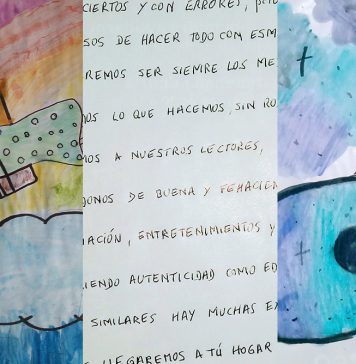 CIERTOS Y CON ERRORES, PERO
SOS DE HACER TODO CON ESM
REMOS SER SIEMRE LOS ME
OS LO QUE HACEMOS, SIN RO
OS A NUESTROS LECTORES,
DONOS DE BUENA Y FEHACIEN
ACIÓN, ENTRETENIMIENTOS Y
IENDO AUTENTICIDAD COMO ED
SIMILARES HAY MUCHAS EX
LLEGAREMOS A TÚ HOGAR